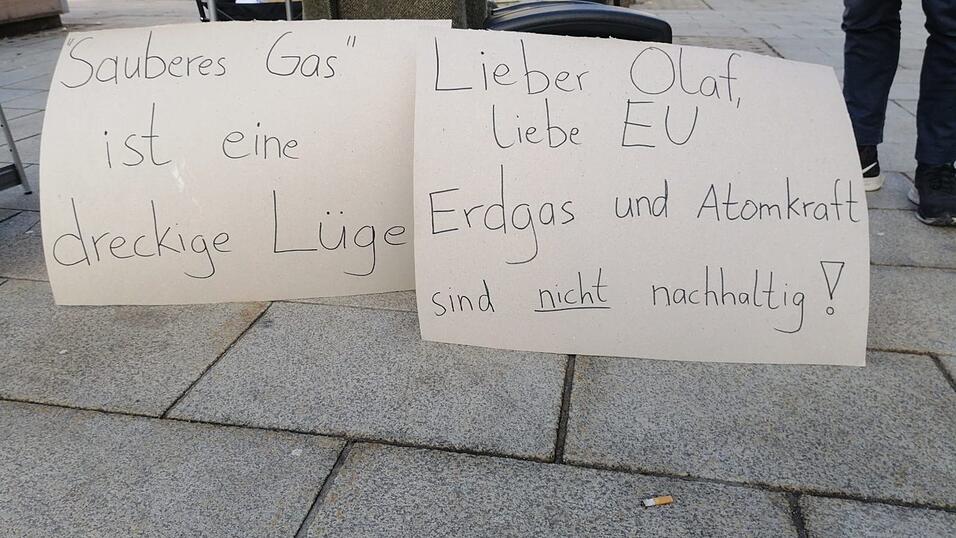 "Sauberes Gas"
ist eine
dreckige Lüge
Lieber Olaf,
liebe EU
Erdgas und Atomkraft
sind nicht nachhaltig!